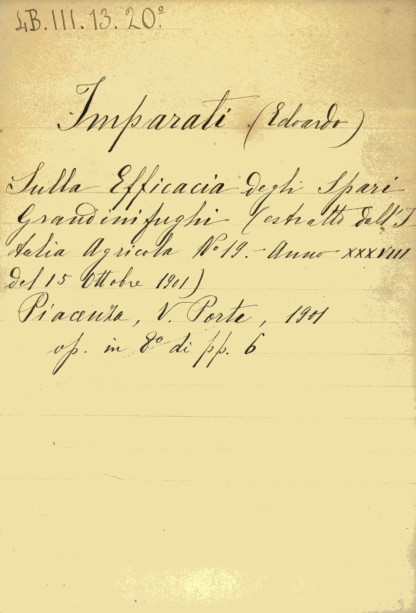 4B. III. 13. 20º
Imparati (Edoardo)
Sulla Efficacia degli Spari
Grandinifughi (estratto dall'I
talia Agricola Nº 19. - Anno XXXVIII
del 15 Ottobre 1901)
Piacenza, V. Porta, 1901
op. in 8º di pp. 6